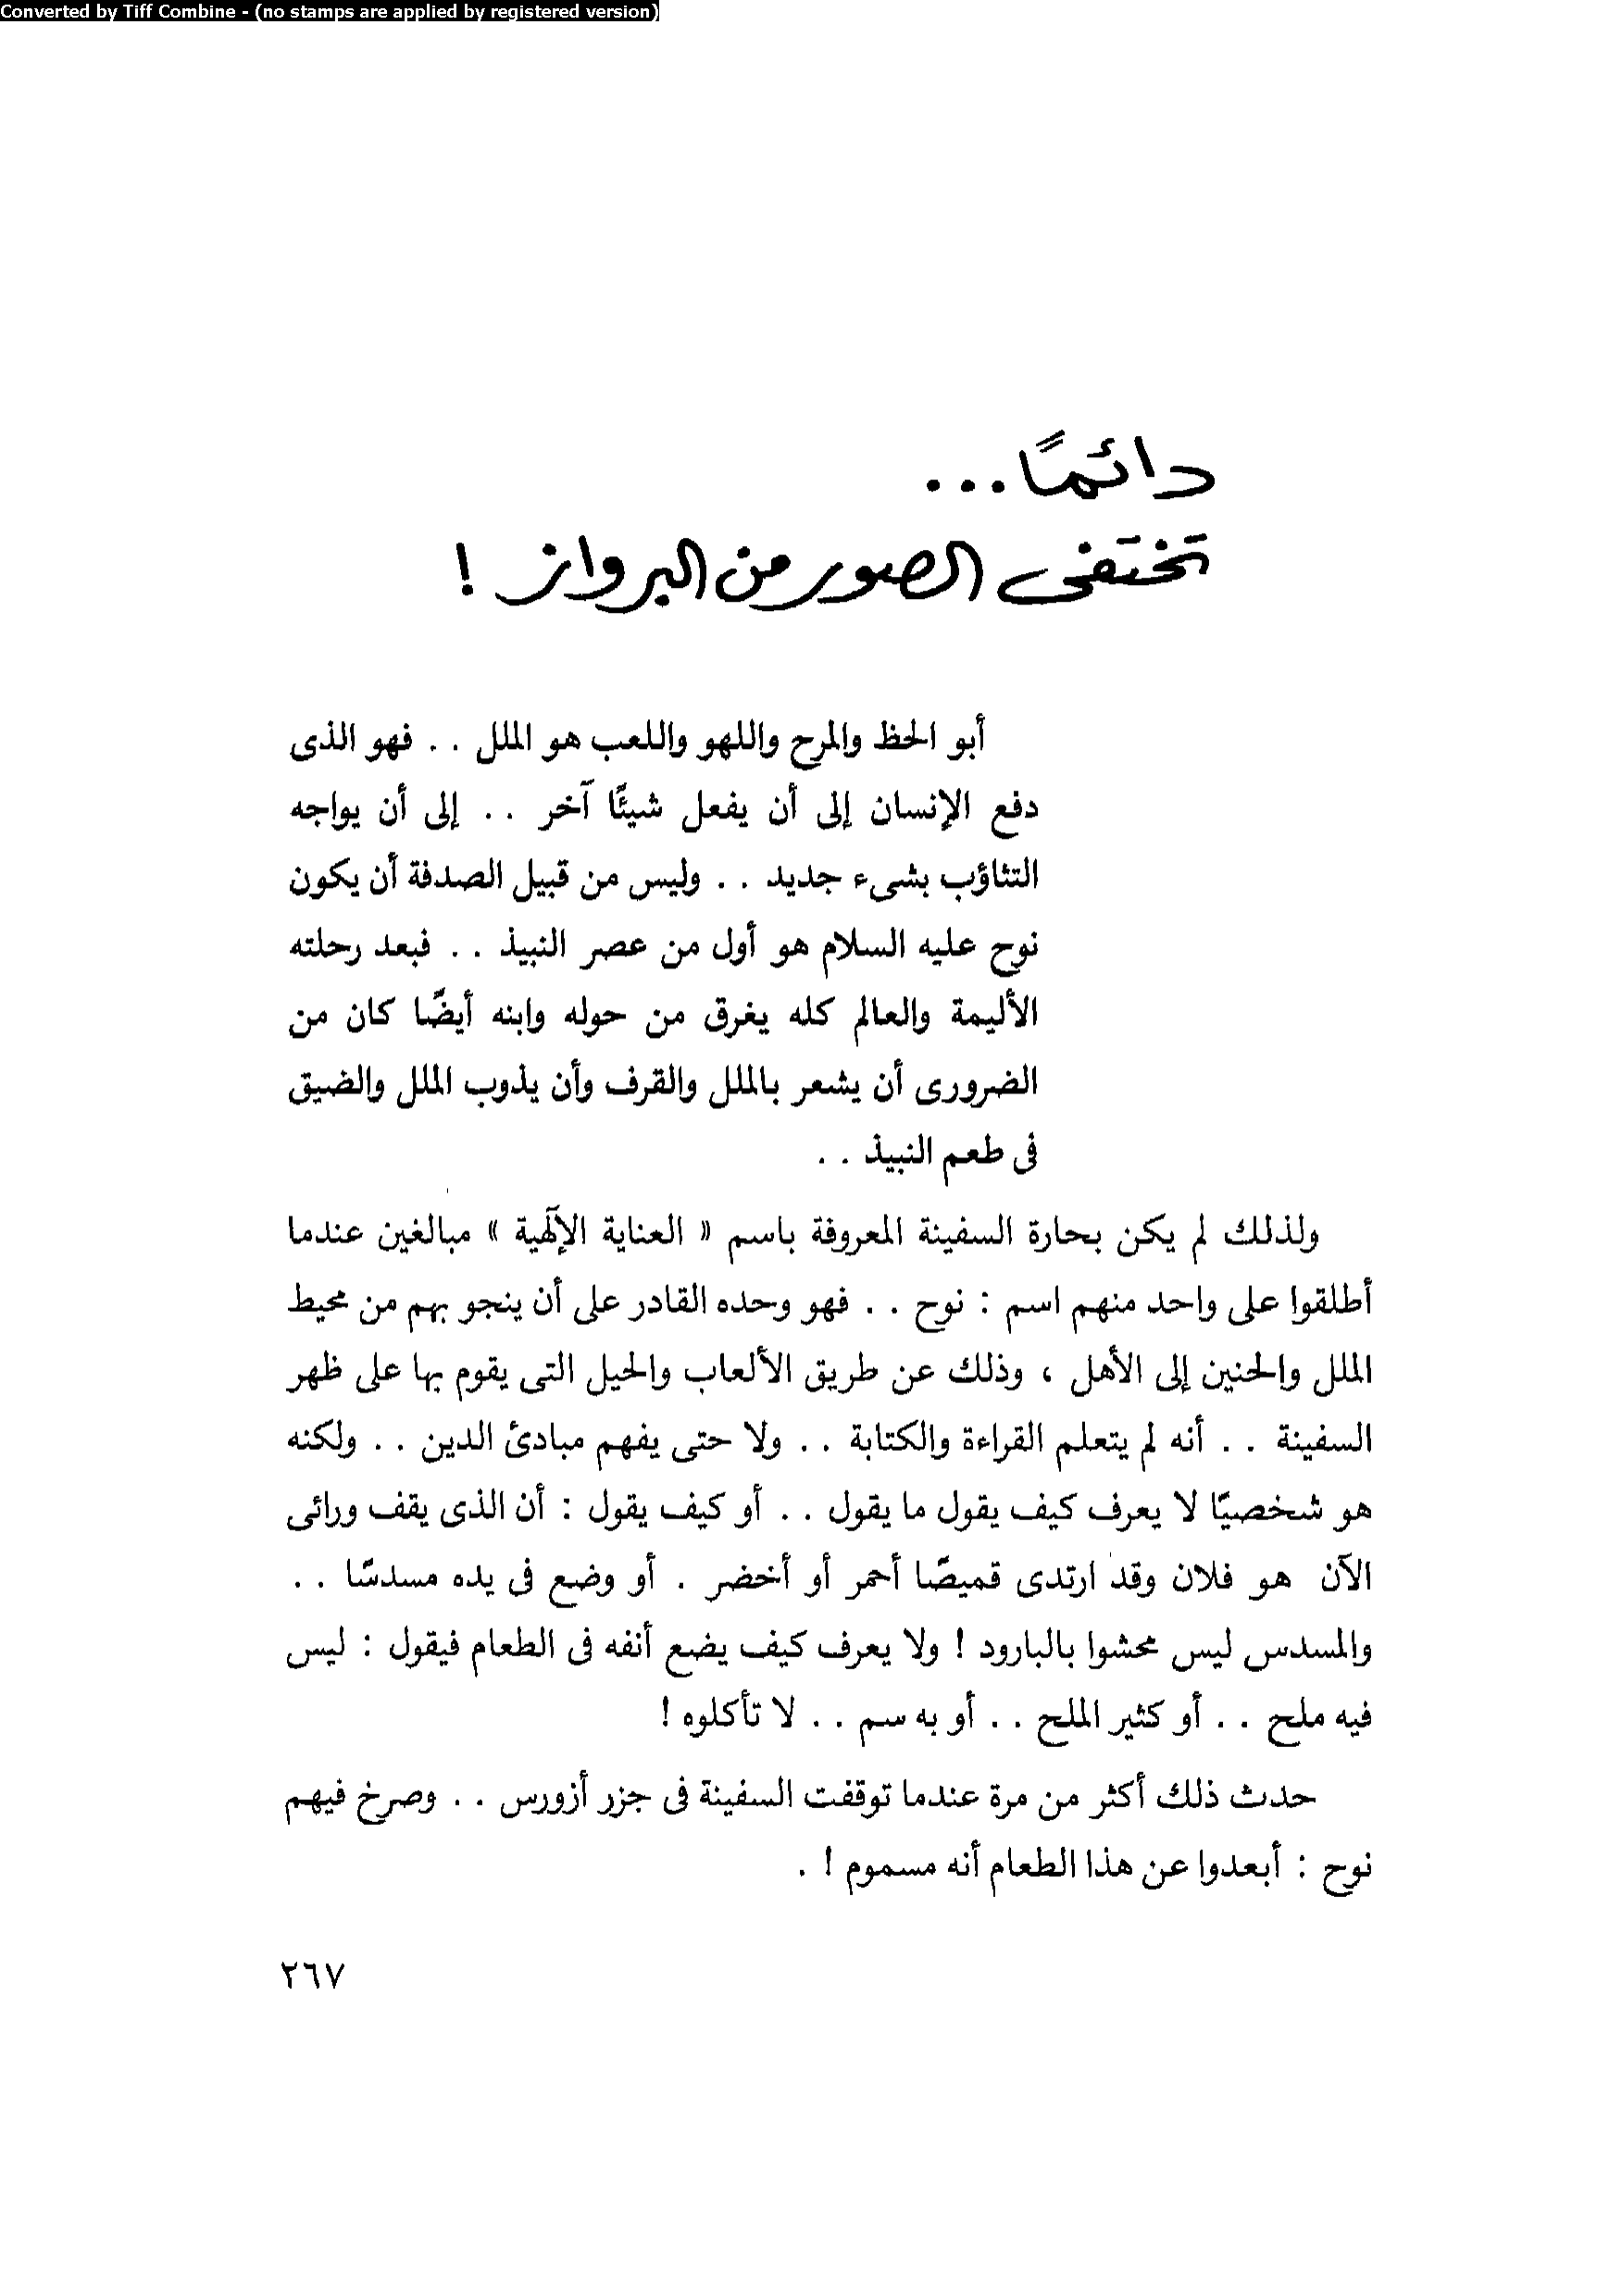 Converted by Tiff Combine - (no stamps are applied by registered version)
دائمًا...
تختفى الصور من البرواز !
أبو الحظ والمرح واللهو واللعب هو الملل . . فهو الذى
دفع الإنسان إلى أن يفعل شيئًا آخر . . إلى أن يواجه
التثاؤب بشىء جديد . . وليس من قبيل الصدفة أن يكون
نوح عليه السلام هو أول من عصر النبيذ . . فبعد رحلته
الأليمة والعالم كله يغرق من حوله وابنه أيضًا كان من
الضرورى أن يشعر بالملل والقرف وأن يذوب الملل والضيق
فى طعم النبيذ . .
ولذلك لم يكن بحارة السفينة المعروفة باسم « العناية الإلٓهية » مبالغين عندما
أطلقوا على واحد منهم اسم : نوح . . فهو وحده القادر على أن ينجو بهم من محيط
الملل والحنين إلى الأهل ، وذلك عن طريق الألعاب والحيل التى يقوم بها على ظهر
السفينة . . أنه لم يتعلم القراءة والكتابة . . ولا حتى يفهم مبادئ الدين . . ولكنه
هو شخصيًا لا يعرف كيف يقول ما يقول . . أو كيف يقول : أن الذى يقف ورائى
الآن هو فلان وقد ارتدى قميصًا أحمر أو أخضر . أو وضع فى يده مسدسًا . .
والمسدس ليس محشوا بالبارود ! ولا يعرف كيف يضع أنفه فى الطعام فيقول : ليس
فيه ملح . . أو كثير الملح . . أو به سم . . لا تأكلوه !
حدث ذلك أكثر من مرة عندما توقفت السفينة فى جزر أزورس . . وصرخ فيهم
نوح : أبعدوا عن هذا الطعام أنه مسموم ! .
٢٦٧